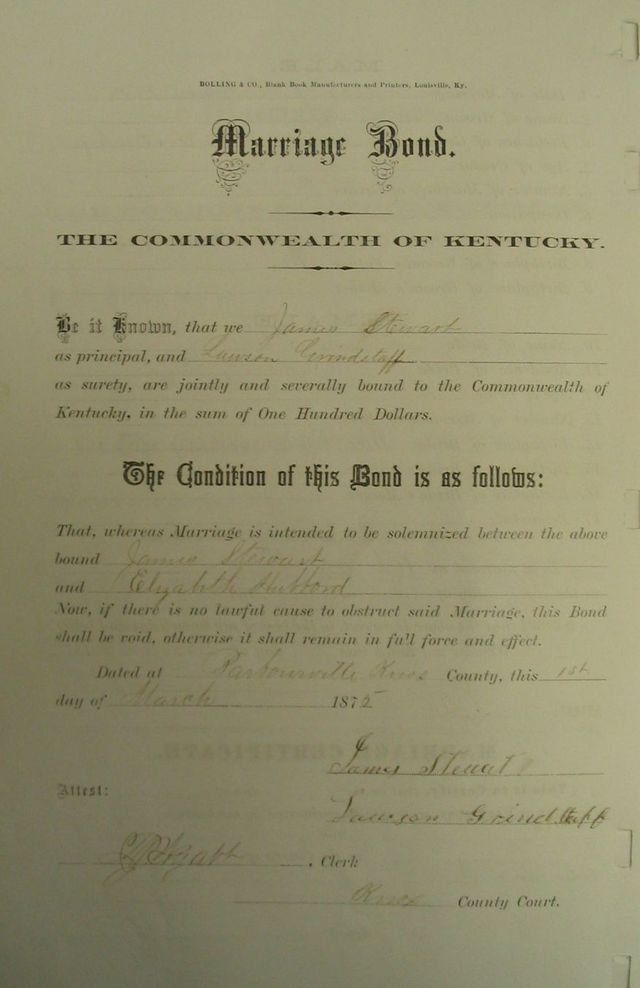 BOLLING & CO., Blank Book Manufacturers and Printers, Louisville, Ky.
Marriage Bond.
THE COMMONWEALTH OF KENTUCKY.
Be it Known, that we James Stewart
as principal, and Lawson Grindstaff
as surety, are jointly and severally bound to the Commonwealth of
Kentucky, in the sum of One Hundred Dollars.
The Condition of this Bond is as follows:
That, whereas Marriage is intended to be solemnized between the above
bound James Stewart
and Elizabeth Hubbard
Now, if there is no lawful cause to obstruct said Marriage, this Bond
shall be void, otherwise it shall remain in full force and effect.
Dated at Barbourville Knox County, this 1st
day of March 1875
James Stewart
Attest:
Lawson Grindstaff
, Clerk
Knox County Court.